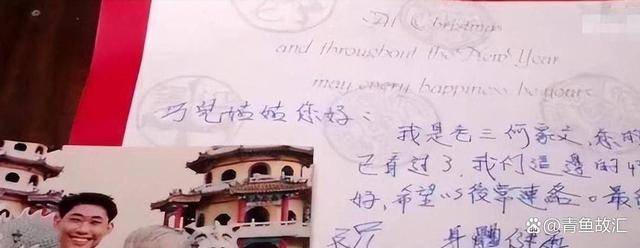 At Christmas
and throughout the New Year
may every happiness be yours
巧兒姑姑您好：
我是老三何家文，您的
已看过了，我们這邊的
好，希望以後常連絡。最
身體健
青鱼故汇